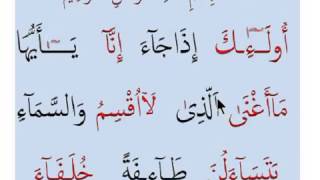 أُولَـٰٓئِكَ إِذَا جَآءَ إِنَّآ يَـٰٓأَيُّهَا
مَآ أَغْنَىٰ ٱلَّذِى لَآ أُقْسِمُ وَالسَّمَآءِ
يَتَسَآءَلُونَ طَآئِفَةٌ خُلَفَآءَ